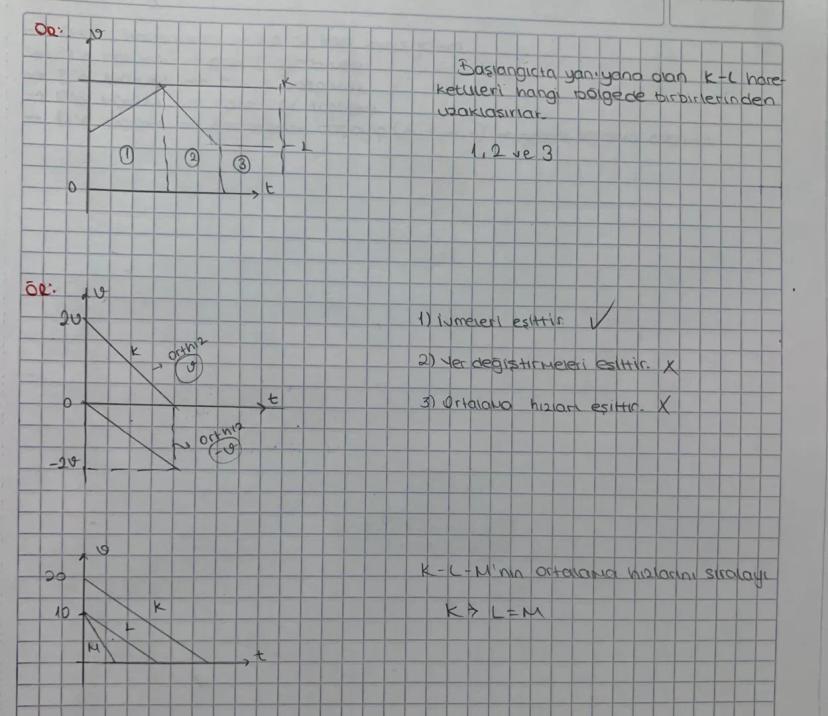 ÖR:
v
K
L
1
2
3
0
t
Başlangıçta yanyana olan K-L hare-
ketlileri hangi bölgede birbirlerinden
uzaklaşırlar.
1, 2 ve 3
ÖR:
v
2v
K
Orthız
v
0
t
Orthız
-v
-2v
1) İvmeleri eşittir. ✓
2) Yer değiştirmeleri eşittir. X
3) Ortalama hızları eşittir. X
v
20
10
K
L
M
t
K-L-M'nin ortalama hızlarını sıralayı
K > L = M